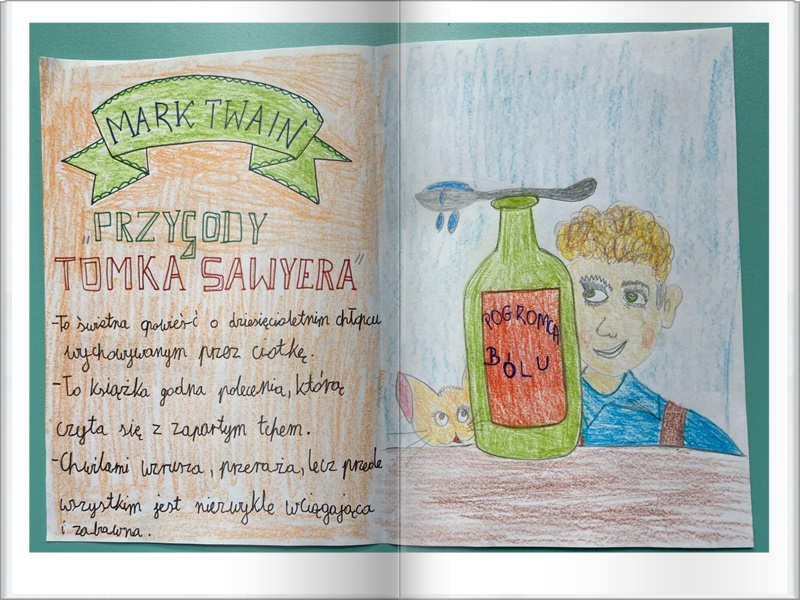 MARK TWAIN
„PRZYGODY
TOMKA SAWYERA"
-To świetna opowieść o dziesięcioletnim chłopcu
wychowywanym przez ciotkę.
-To książka godna polecenia, którą
czyta się z zapartym tchem.
-Chwilami wzrusza, przeraża, lecz przede
wszystkim jest niezwykle wciągająca
i zabawna.
POGROMCA
BÓLU